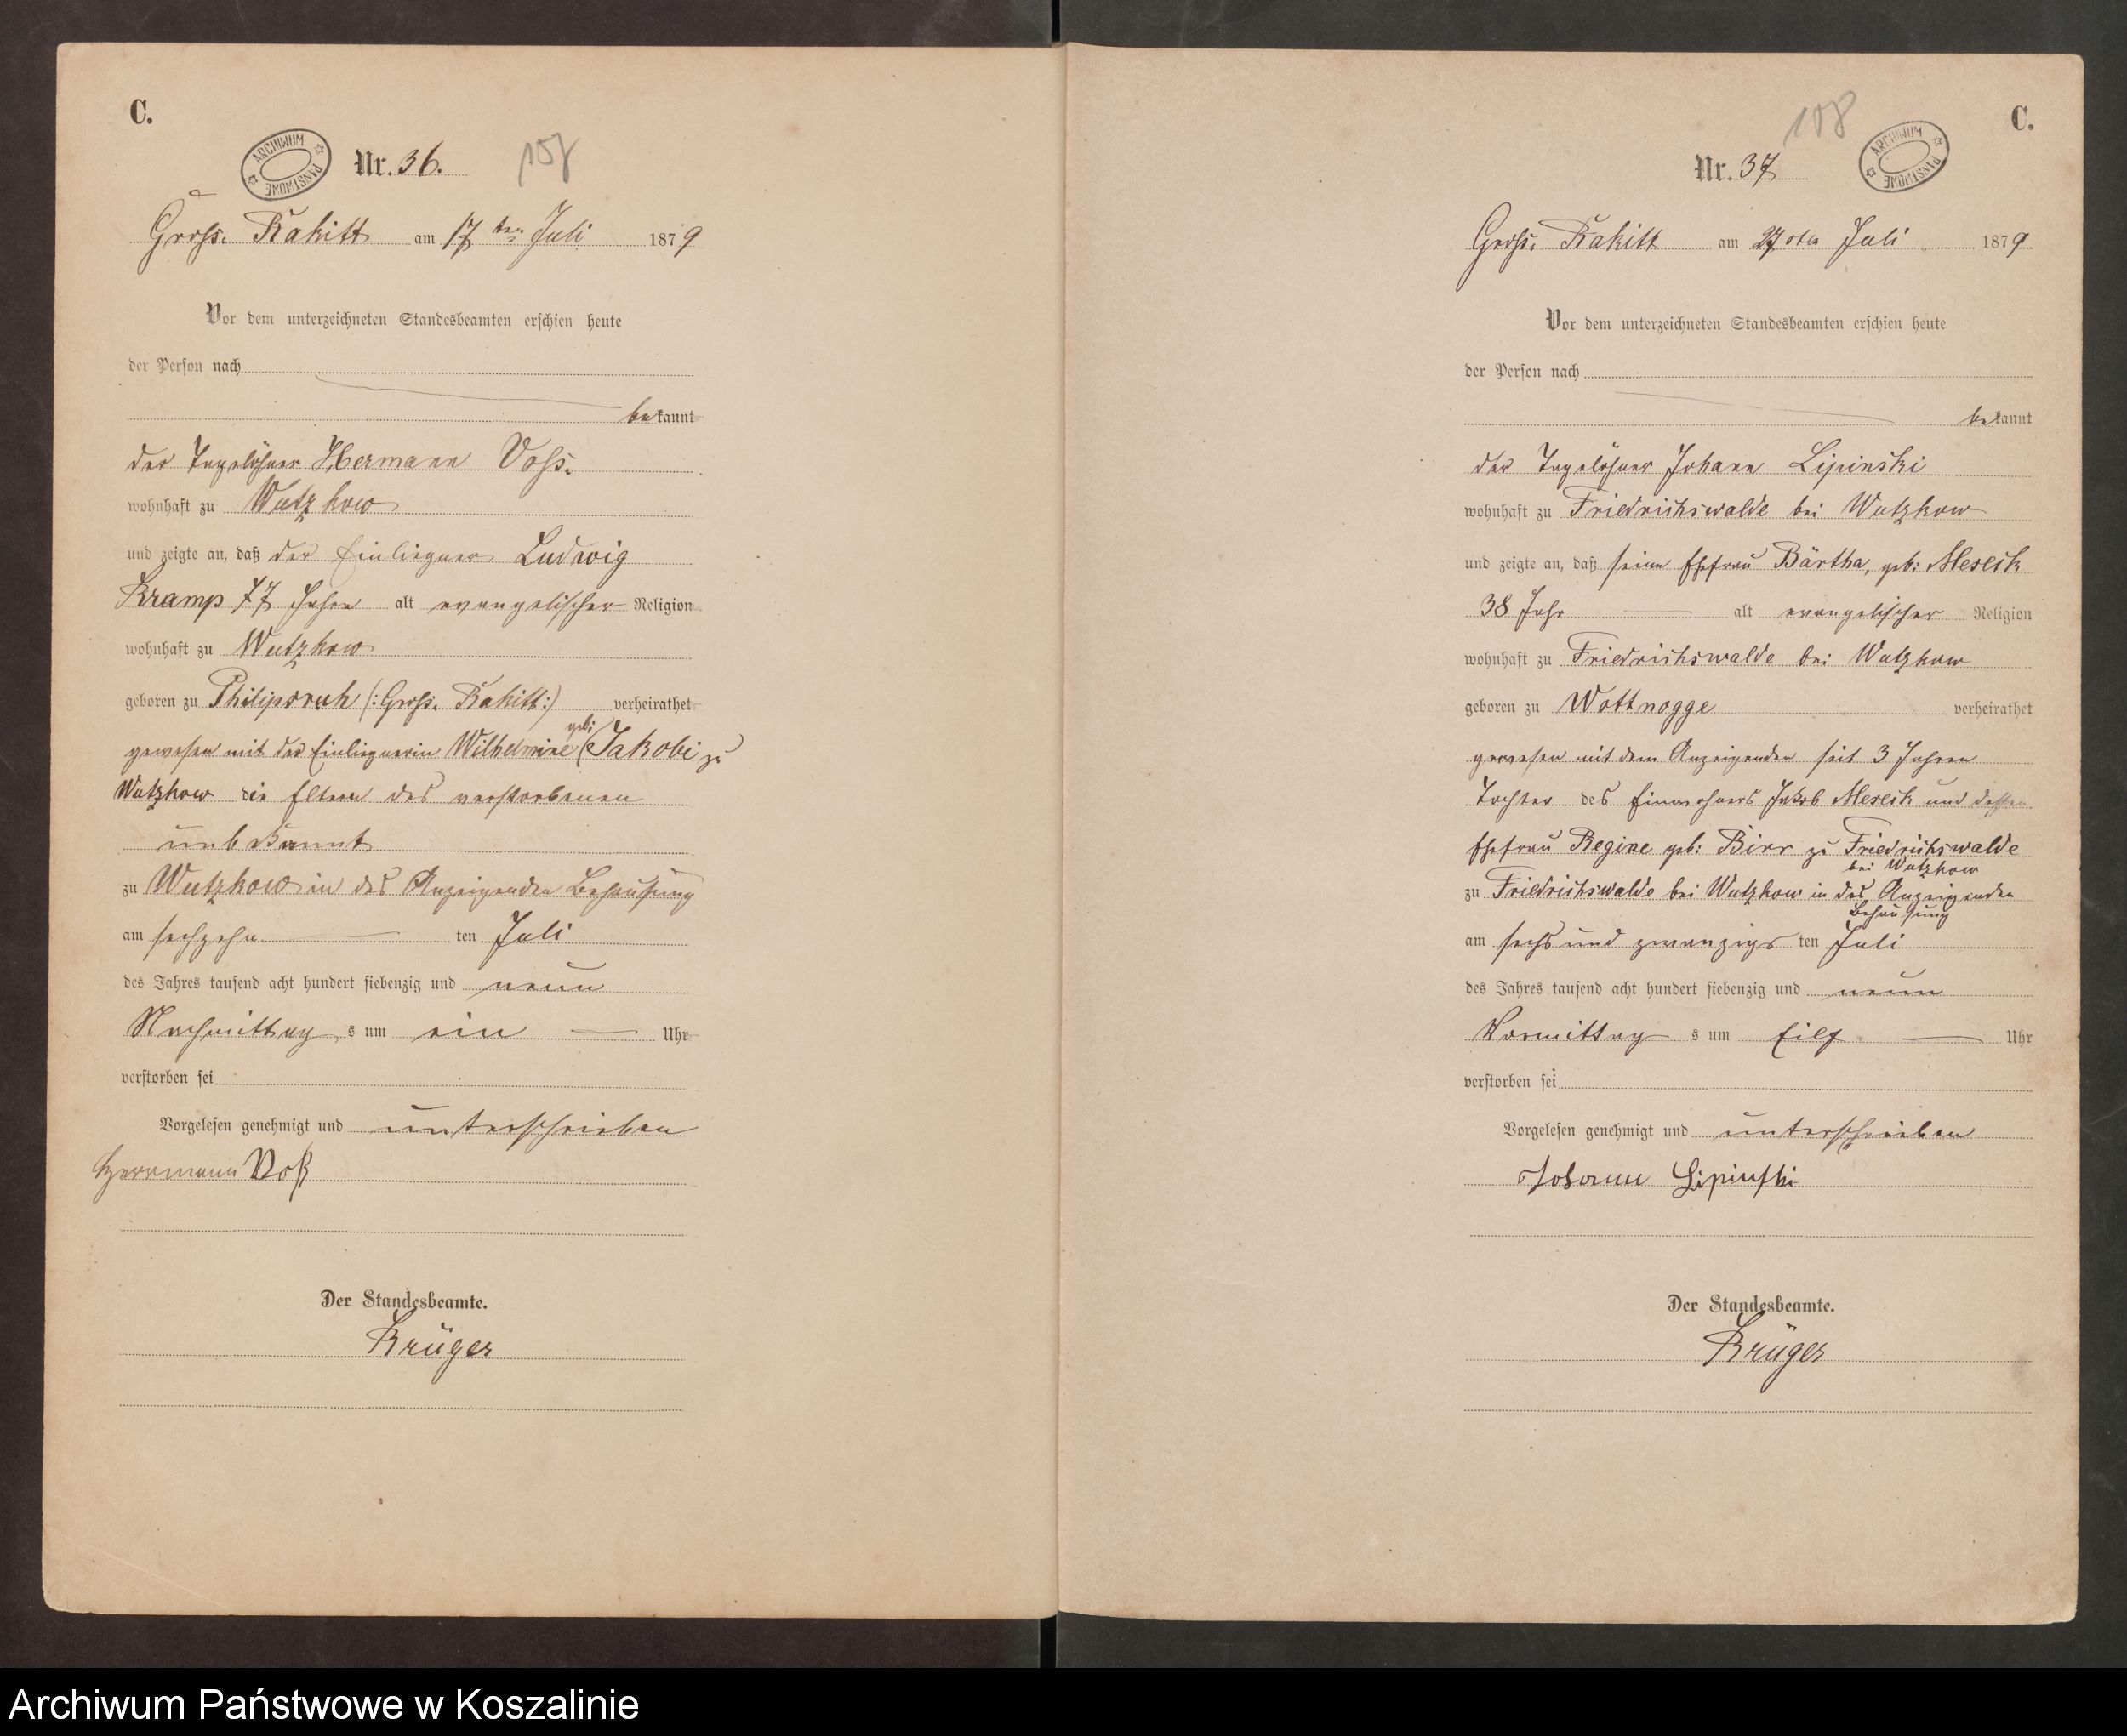 C.
ARCHIWUM PAŃSTWOWE
Nr. 36.
Gross. Rakitt am 17 ten Juli 1879
Vor dem unterzeichneten Standesbeamten erschien heute
der Person nach
bekannt
der Tagelöhner Hermann Voss.
wohnhaft zu Wutzkow
und zeigte an, daß der Einlieger Ludwig
Kramp 77 Jahre alt evangelischer Religion
wohnhaft zu Wutzkow
geboren zu Philipsruh (: Gross. Rakitt:) verheirathet
geb:
gewesen mit der Einliegerin Wilhelmine (Jakobi zu
Wutzkow die Eltern des verstorbenen
unbekannt
zu Wutzkow in des Anzeigenden Behausung
am sechzehn ten Juli
des Jahres tausend acht hundert siebenzig und neun
Nachmittag s um ein Uhr
verstorben sei
Vorgelesen genehmigt und unterschrieben
Herrmann Voß
Der Standesbeamte.
Krüger
108
C.
Nr. 37
ARCHIWUM PAŃSTWOWE
Gross. Rakitt am 27 sten Juli 1879
Vor dem unterzeichneten Standesbeamten erschien heute
der Person nach
bekannt
der Tagelöhner Johann Lipinski
wohnhaft zu Friedrichswalde bei Wutzkow
und zeigte an, daß seine Ehefrau Bärtha, geb: Meseck
38 Jahr alt evangelischer Religion
wohnhaft zu Friedrichswalde bei Wutzkow
geboren zu Wottnogge verheirathet
gewesen mit dem Anzeigenden seit 3 Jahren
Tochter des Einwohners Jakob Meseck und dessen
Ehefrau Regine geb: Birr zu Friedrichswalde
bei Wutzkow
zu Friedrichswalde bei Wutzkow in des Anzeigenden
Behausung
am sechs und zwanzigs ten Juli
des Jahres tausend acht hundert siebenzig und neun
Vormittag s um Eilf Uhr
verstorben sei
Vorgelesen genehmigt und unterschrieben
Johann Lipinski
Der Standesbeamte.
Krüger
Archiwum Państwowe w Koszalinie